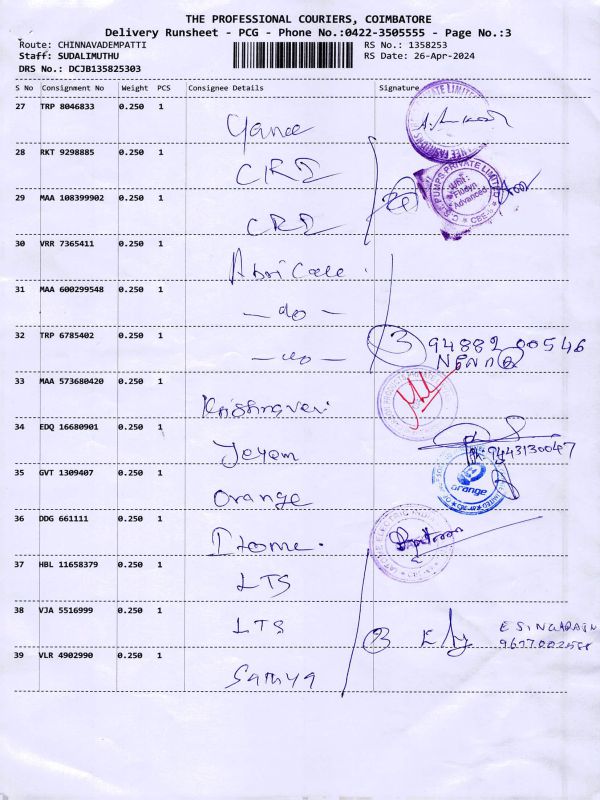 THE PROFESSIONAL COURIERS, COIMBATORE
Delivery Runsheet - PCG - Phone No.:0422-3505555 - Page No.:3
Route: CHINNAVADEMPATTI RS No.: 1358253
Staff: SUDALIMUTHU RS Date: 26-Apr-2024
DRS No.: DCJB135825303
S No Consignment No Weight PCS Consignee Details Signature
27 TRP 8046833 0.250 1
28 RKT 9298885 0.250 1
CRI
C.R.I. PUMPS PRIVATE LIMITED
Unit:
Fludyn
Advanced
CBE-6
29 MAA 108399902 0.250 1
CRI
30 VRR 7365411 0.250 1
31 MAA 600299548 0.250 1
- do -
32 TRP 6785402 0.250 1
- do -
3 94882 00546
33 MAA 573680420 0.250 1
Krishnaveni
34 EDQ 16680901 0.250 1
Jeyam
9443130047
35 GVT 1309407 0.250 1
Orange
orange
36 DDG 661111 0.250 1
37 HBL 11658379 0.250 1
LTS
38 VJA 5516999 0.250 1
LTS
3
39 VLR 4902990 0.250 1
Sathya